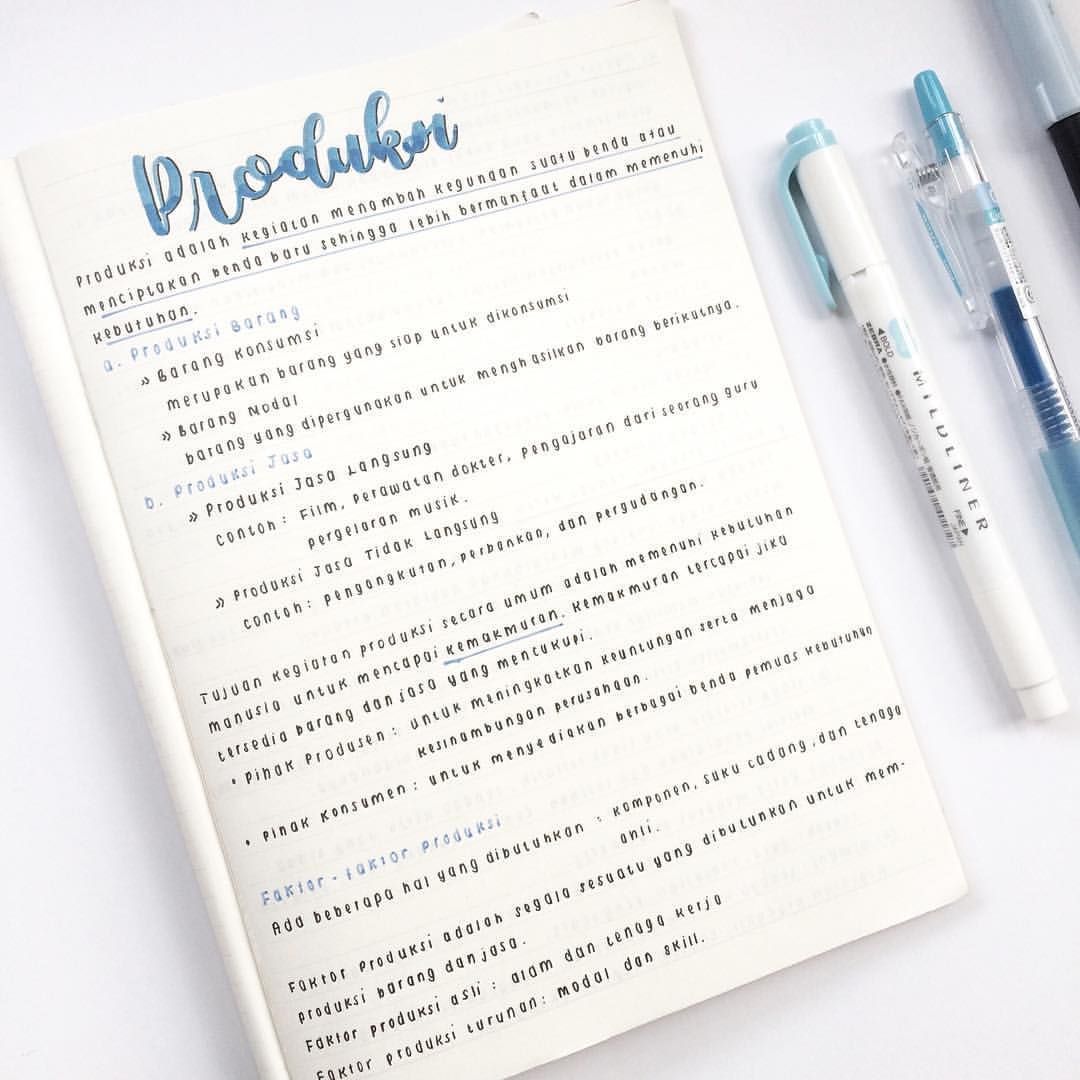 Produksi
Produksi adalah kegiatan menambah kegunaan suatu benda atau
menciptakan benda baru sehingga lebih bermanfaat dalam memenuhi
kebutuhan.
a. Produksi Barang
» Barang Konsumsi
merupakan barang yang siap untuk dikonsumsi
» Barang Modal
barang yang dipergunakan untuk menghasilkan barang berikutnya.
b. Produksi Jasa
» Produksi Jasa Langsung
Contoh: Film, Perawatan dokter, pengajaran dari seorang guru
pergelaran musik.
» Produksi Jasa Tidak Langsung
Contoh: pengangkutan, perbankan, dan pergudangan.
Tujuan kegiatan produksi secara umum adalah memenuhi kebutuhan
manusia untuk mencapai kemakmuran. Kemakmuran tercapai jika
tersedia barang dan jasa yang mencukupi.
• Pihak Produsen: untuk meningkatkan keuntungan serta menjaga
kesinambungan perusahaan.
• Pihak Konsumen: untuk menyediakan berbagai benda pemuas kebutuhan
Faktor-faktor Produksi
Ada beberapa hal yang dibutuhkan: komponen, suku cadang, dan tenaga
ahli.
Faktor Produksi adalah segala sesuatu yang dibutuhkan untuk mem-
produksi barang dan jasa.
Faktor produksi asli: alam dan tenaga kerja
Faktor produksi turunan: modal dan skill.
◀BOLD
ZEBRA
MILDLINER
FINE▶
JAPAN